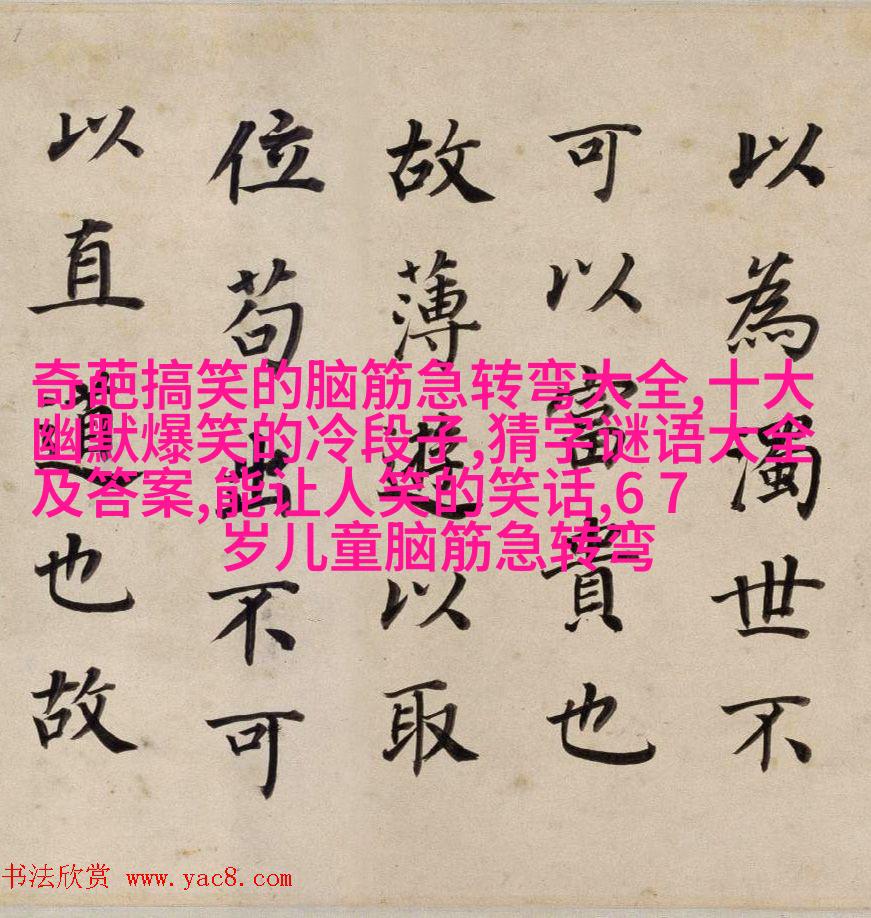 以為濁世不
可以富貴也
故薄遊以取
位苟出不可
以直道也故
奇葩搞笑的脑筋急转弯大全,十大
幽默爆笑的冷段子,猜字谜语大全
及答案,能让人笑的笑话,6 7
岁儿童脑筋急转弯
书法欣赏 www.yac8.com